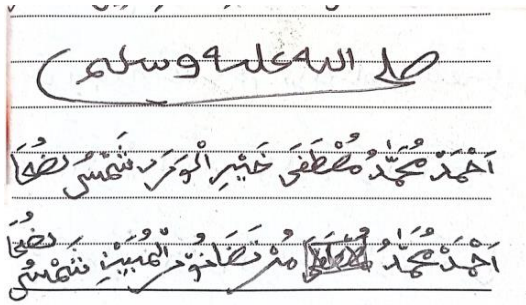 صلى الله عليه وسلم
اَحْمَدْ مُحَمَّدُ مُصْطَفَى خَيْرِ الْوَرَى شَمْسُ ضُحَا
اَحْمَدْ مُحَمَّدُ الْمُبِيْنِ شَمْسُ ضُحَا